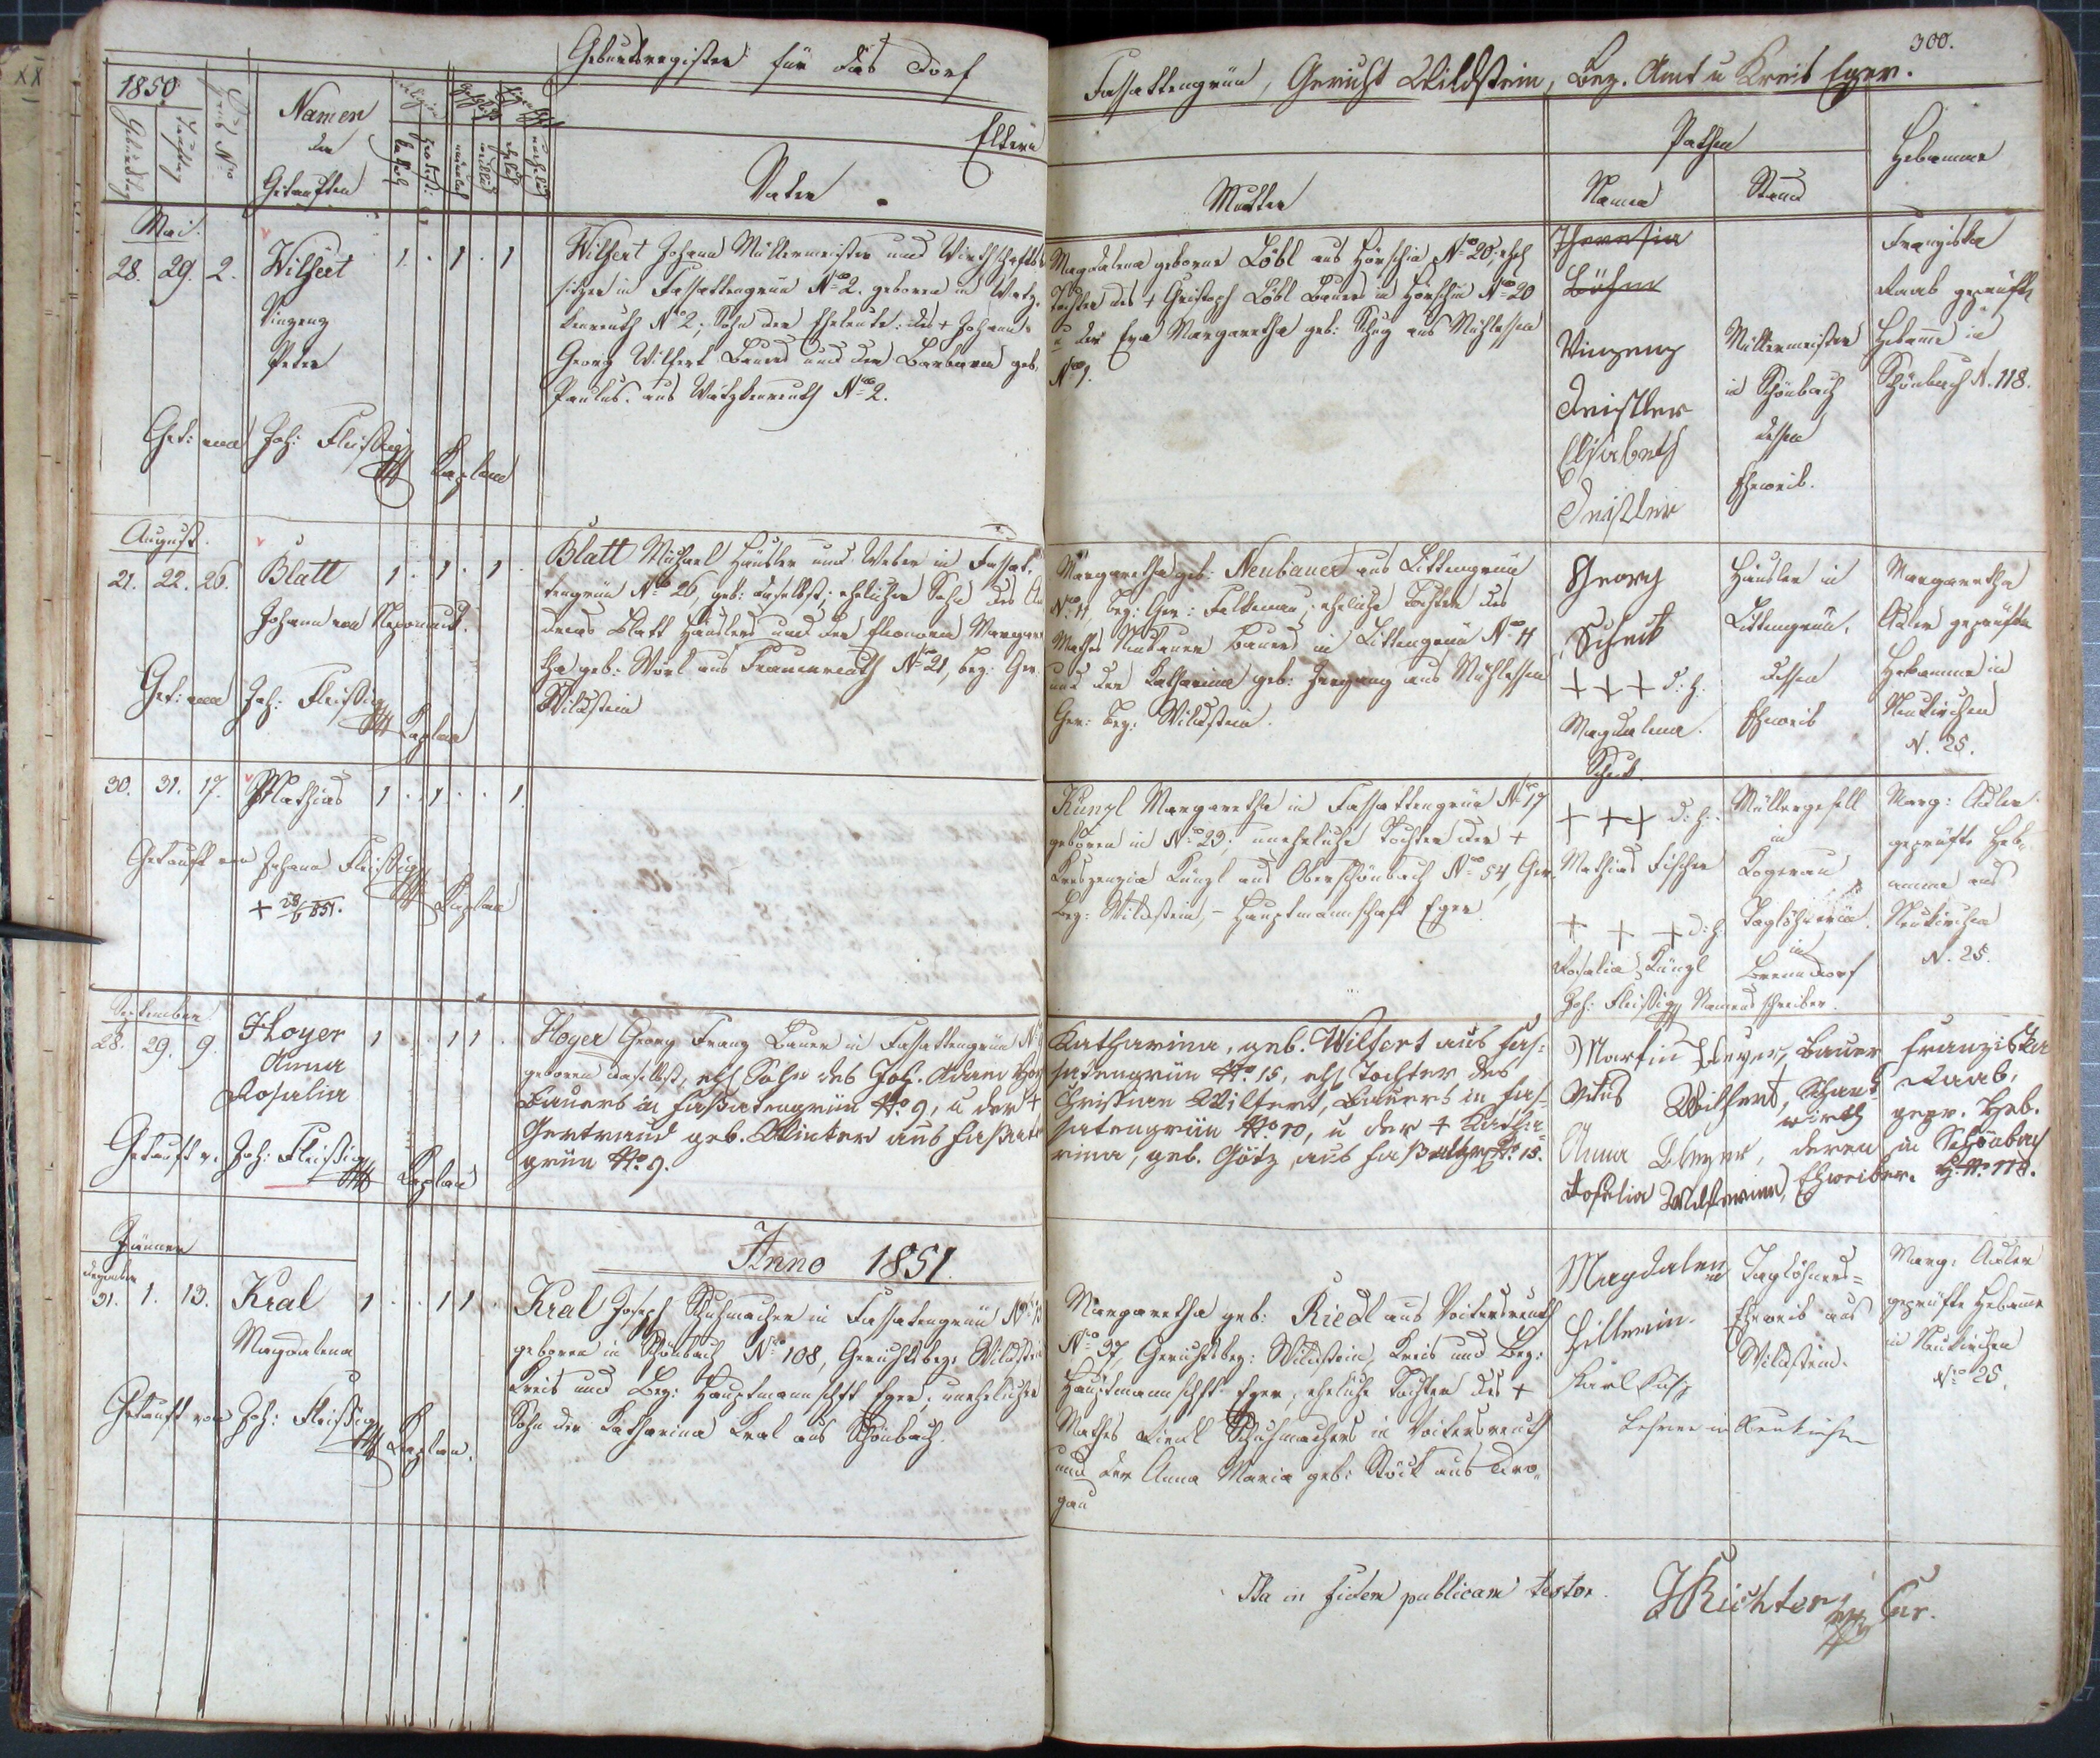 300.
Geburtsregister für das Dorf
Fassattengrün, Gericht Wildstein, Bez. Amt u Kreis Eger.
1850.
Geburtstag
Tauftag
Haus Nro
Namen
der
Getauften
Religion
kathol
männlich
weiblich
ehelich
unehelich
Eltern
Vater
Mutter
Pathen
Namen
Stand
Hebamme
Mai.
28. 29. 2.
Wilfert
Vinzenz
Peter
1. 1. 1
Get: von Joh: Fleißig
Kaplan
Wilfert Johann Müllermeister und Wirthschaftsbe
sitzer in Fassattengrün No 2. geboren in Watz-
kenreuth No 2; Sohn der Eheleute: des + Johann
Georg Wilfert Bauers und der Barbara geb.
Paulus aus Watzkenreuth No 2.
Magdalena geborne Löbl aus Hörschin No 20; ehel
Tochter des + Christoph Löbl Bauers in Hörschin No 20
u der Eva Margaretha geb: aus Mühlessen
No 9.
Theresia
Böhm
Vinzenz
Deistler
Elisabeth
Deistler
Müllermeister
in Schönbach
dessen
Eheweib.
Franziska
Raab geprüfte
Hebamme in
Schönbach N. 118.
August.
21. 22. 26.
Blatt
Johann von Nepomuk.
1. 1. 1.
Get: von Joh: Fleißig
Kaplan
Blatt Michael Häusler und Weber in Fassat-
tengrün No 26, geb: daselbst; ehelicher Sohn des An
dreas Blatt Häuslers und der Eleonora Margare
tha geb: aus Frauenreuth No 21, bez: Ger.
Wildstein
Margaretha geb: Neubauer aus Littengrün
No 11, bez: Ger: Falkenau; eheliche Tochter des
Mathes Neubauer Bauers in Littengrün No 11
und der Katharina geb: aus Mühlessen
Ger: bez: Wildstein.
Georg
Scheck
+ + + d: h.
Magdalena
Scheck.
Häusler in
Littengrün.
dessen
Eheweib
Margaretha
Adler geprüfte
Hebamme in
Neukirchen
N. 25.
30. 31. 17. Mathias
1. 1. . 1.
Getauft von Johann Fleißig
Kaplan
+ 28/6 851.
Künzl Margaretha in Fassattengrün No 17
geboren in No 23; uneheliche Tochter der +
Kreszenzia Künzl aus Oberschönbach No 54, Ger.
bez: Wildstein, - Hauptmannschaft Eger.
+ + + d: h.
Mathias Fischer
+ + + d: h.
Rosalia Künzl
Joh: Fleißig Namensschreiber.
Müllergesell
in
Kogerau
Taglöhnerin
in
Marg: Adler
geprüfte Heb-
amme aus
Neukirchen
N. 25.
September
28. 29. 9.
Hoyer
Anna
Rosalia
1 . 1 1 .
Getauft v. Joh: Fleißig
Kaplan
Hoyer Georg Franz Bauer in Fassattengrün No 9
geboren daselbst, ehl Sohn des Joh. Adam Hoy
Bauers in Faßatengrün No. 9, u der +
Gertraud geb. Winter aus Faßaten
grün No. 9.
Katharina, geb. Wilfert aus Fas-
satengrün No. 15, ehl. Tochter des
Christian Wilfert, Bauers in Fas-
satengrün No. 10, u der + Katha-
rina, geb. Götz, aus Faßatgr. No. 15.
Martin, Bauer
Veitus Wilfert, Schank-
wirth
Anna, deren
Rosalia Wilfertinn, Eheweiber.
Franziska
Raab,
gepr. Heb.
in Schönbach
H. No. 118.
Jänner
Anno 1851.
Dezember
31. 1. 13.
Kral
Magdalena
1 . 1 1 .
Getauft von Joh: Fleißig
Kaplan.
Kral Joseph Schuhmacher in Fassatengrün No 13
geboren in Schönbach No 108, Gerichtsbez: Wildstein
Kreis und Bez: Hauptmannschft Eger; unehelicher
Sohn der Katharina Kral aus Schönbach.
Margaretha geb: Riedl aus Voitersreuth
No 37, Gerichtsbez: Wildstein, Kreis und Bez:
Hauptmannschft Eger, eheliche Tochter des +
Mathes Riedl Schuhmachers in Voitersreuth
und der Anna Maria geb: Stöck aus
Magdalena
Hillerin
Karl
Lehrer in Neukirchen
Taglöhners-
Eheweib aus
Wildstein.
Marg: Adler
geprüfte Hebamme
in Neukirchen
No 25.
Ita in fidem publicam testor.
JRichter
Cur.